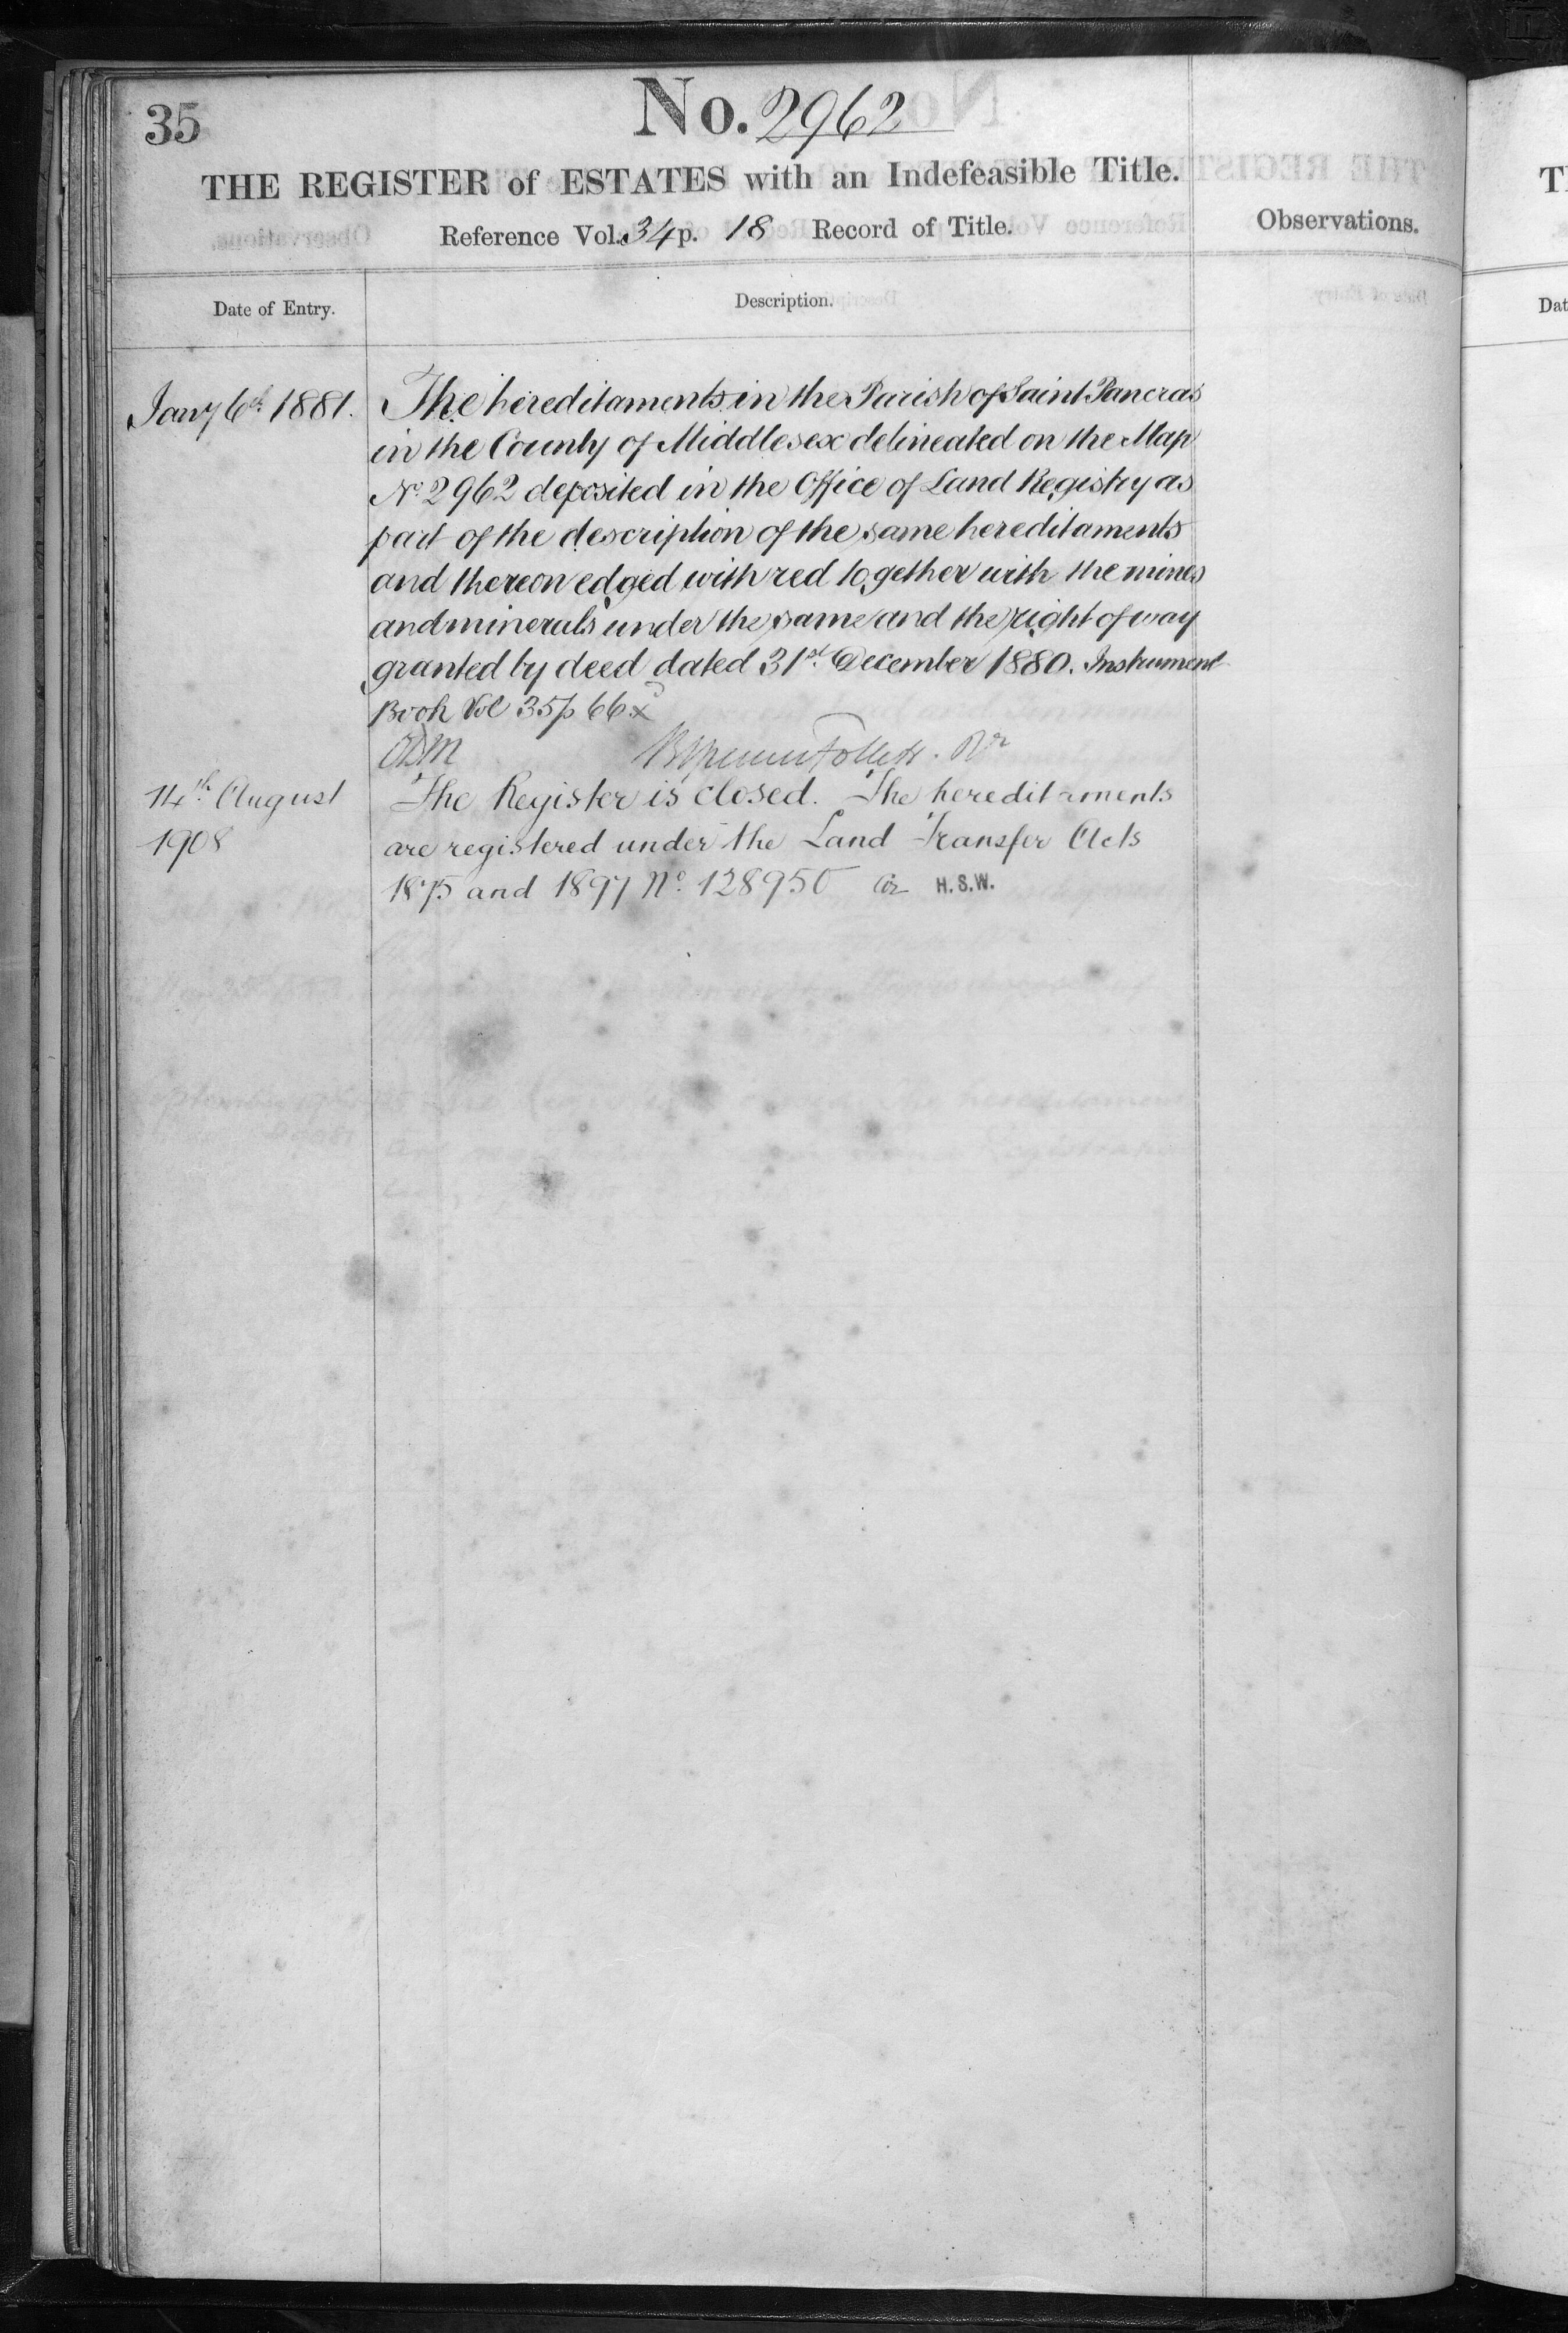 35
No. 2962
THE REGISTER of ESTATES with an Indefeasible Title.
Reference Vol. 34 p. 18 Record of Title.
Observations.
Date of Entry.
Description.
Jany 6th 1881.
The hereditaments in the Parish of Saint Pancras
in the County of Middlesex delineated on the Map
No. 2962 deposited in the Office of Land Registry as
part of the description of the same hereditaments
and thereon edged with red together with the mines
and minerals under the same and the right of way
granted by deed dated 31st December 1880. Instrument
Book Vol 35 p 66
Follett. Rr
14th August
1908
The Register is closed. The hereditaments
are registered under the Land Transfer Acts
1875 and 1897 No. 128950 H.S.W.
T
Dat